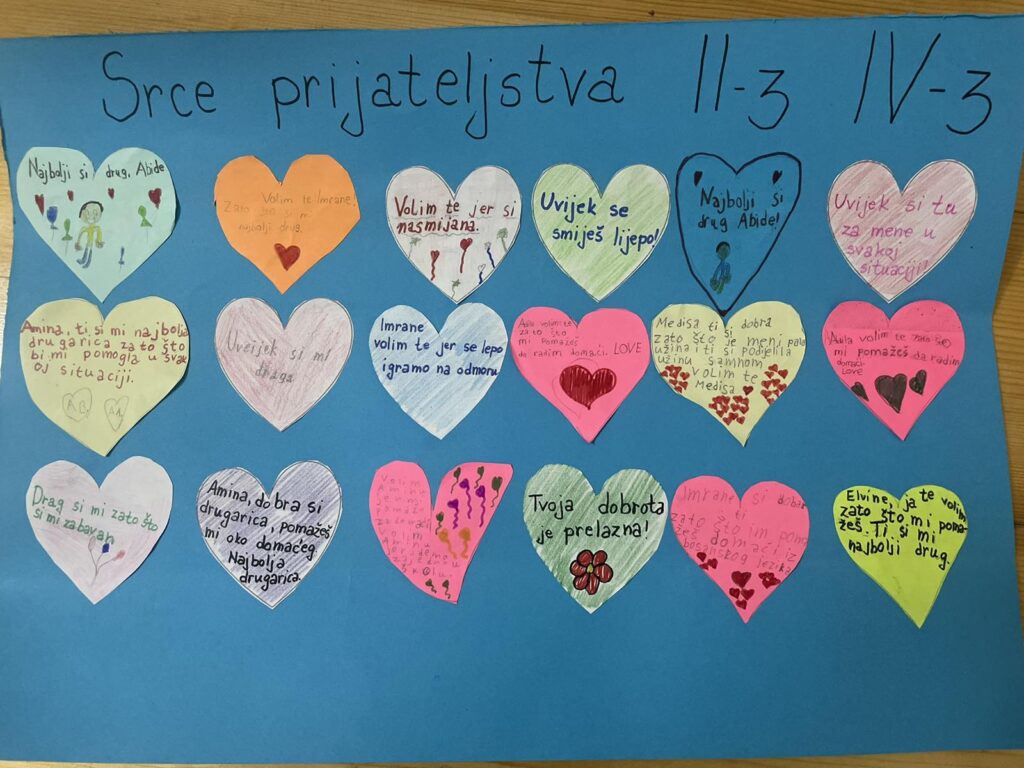 Srce prijateljstva II-3 IV-3
Najbolji si drug, Abide
Volim te Imrane!
Zato što si mi
najbolji drug.
Volim te jer si
nasmijana.
Uvijek se
smiješ lijepo!
Najbolji si
drug Abide!
Uvijek si tu
za mene u
svakoj
situaciji!
Amina, ti si mi najbolja
drugarica zato što
bi mi pomogla u svak
oj situaciji.
Uveijek si mi
draga
Imrane
volim te jer se lepo
igramo na odmoru
Ajla volim te
zato što
mi Pomažeš
da radim domaci. LOVE
Medisa ti si dobra
zato što je meni pala
užina i ti si podjelila
užinu samnom
VOLIM TE
Medisa
Ajla volim te zato što
mi pomažeš da radim
domaci
LOVE
Drag si mi zato što
si mi zabavan
Amina, dobra si
drugarica, pomažeš
mi oko domaćeg.
Najbolja
drugarica.
Volim
školu.
Tvoja dobrota
je prelazna!
Imrane si dobar
ti
zato što im pomo
žeš domaći iz
bosanskog jezika
Elvine, ja te volim
zato što mi poma-
žeš. Ti si mi
najbolji drug.